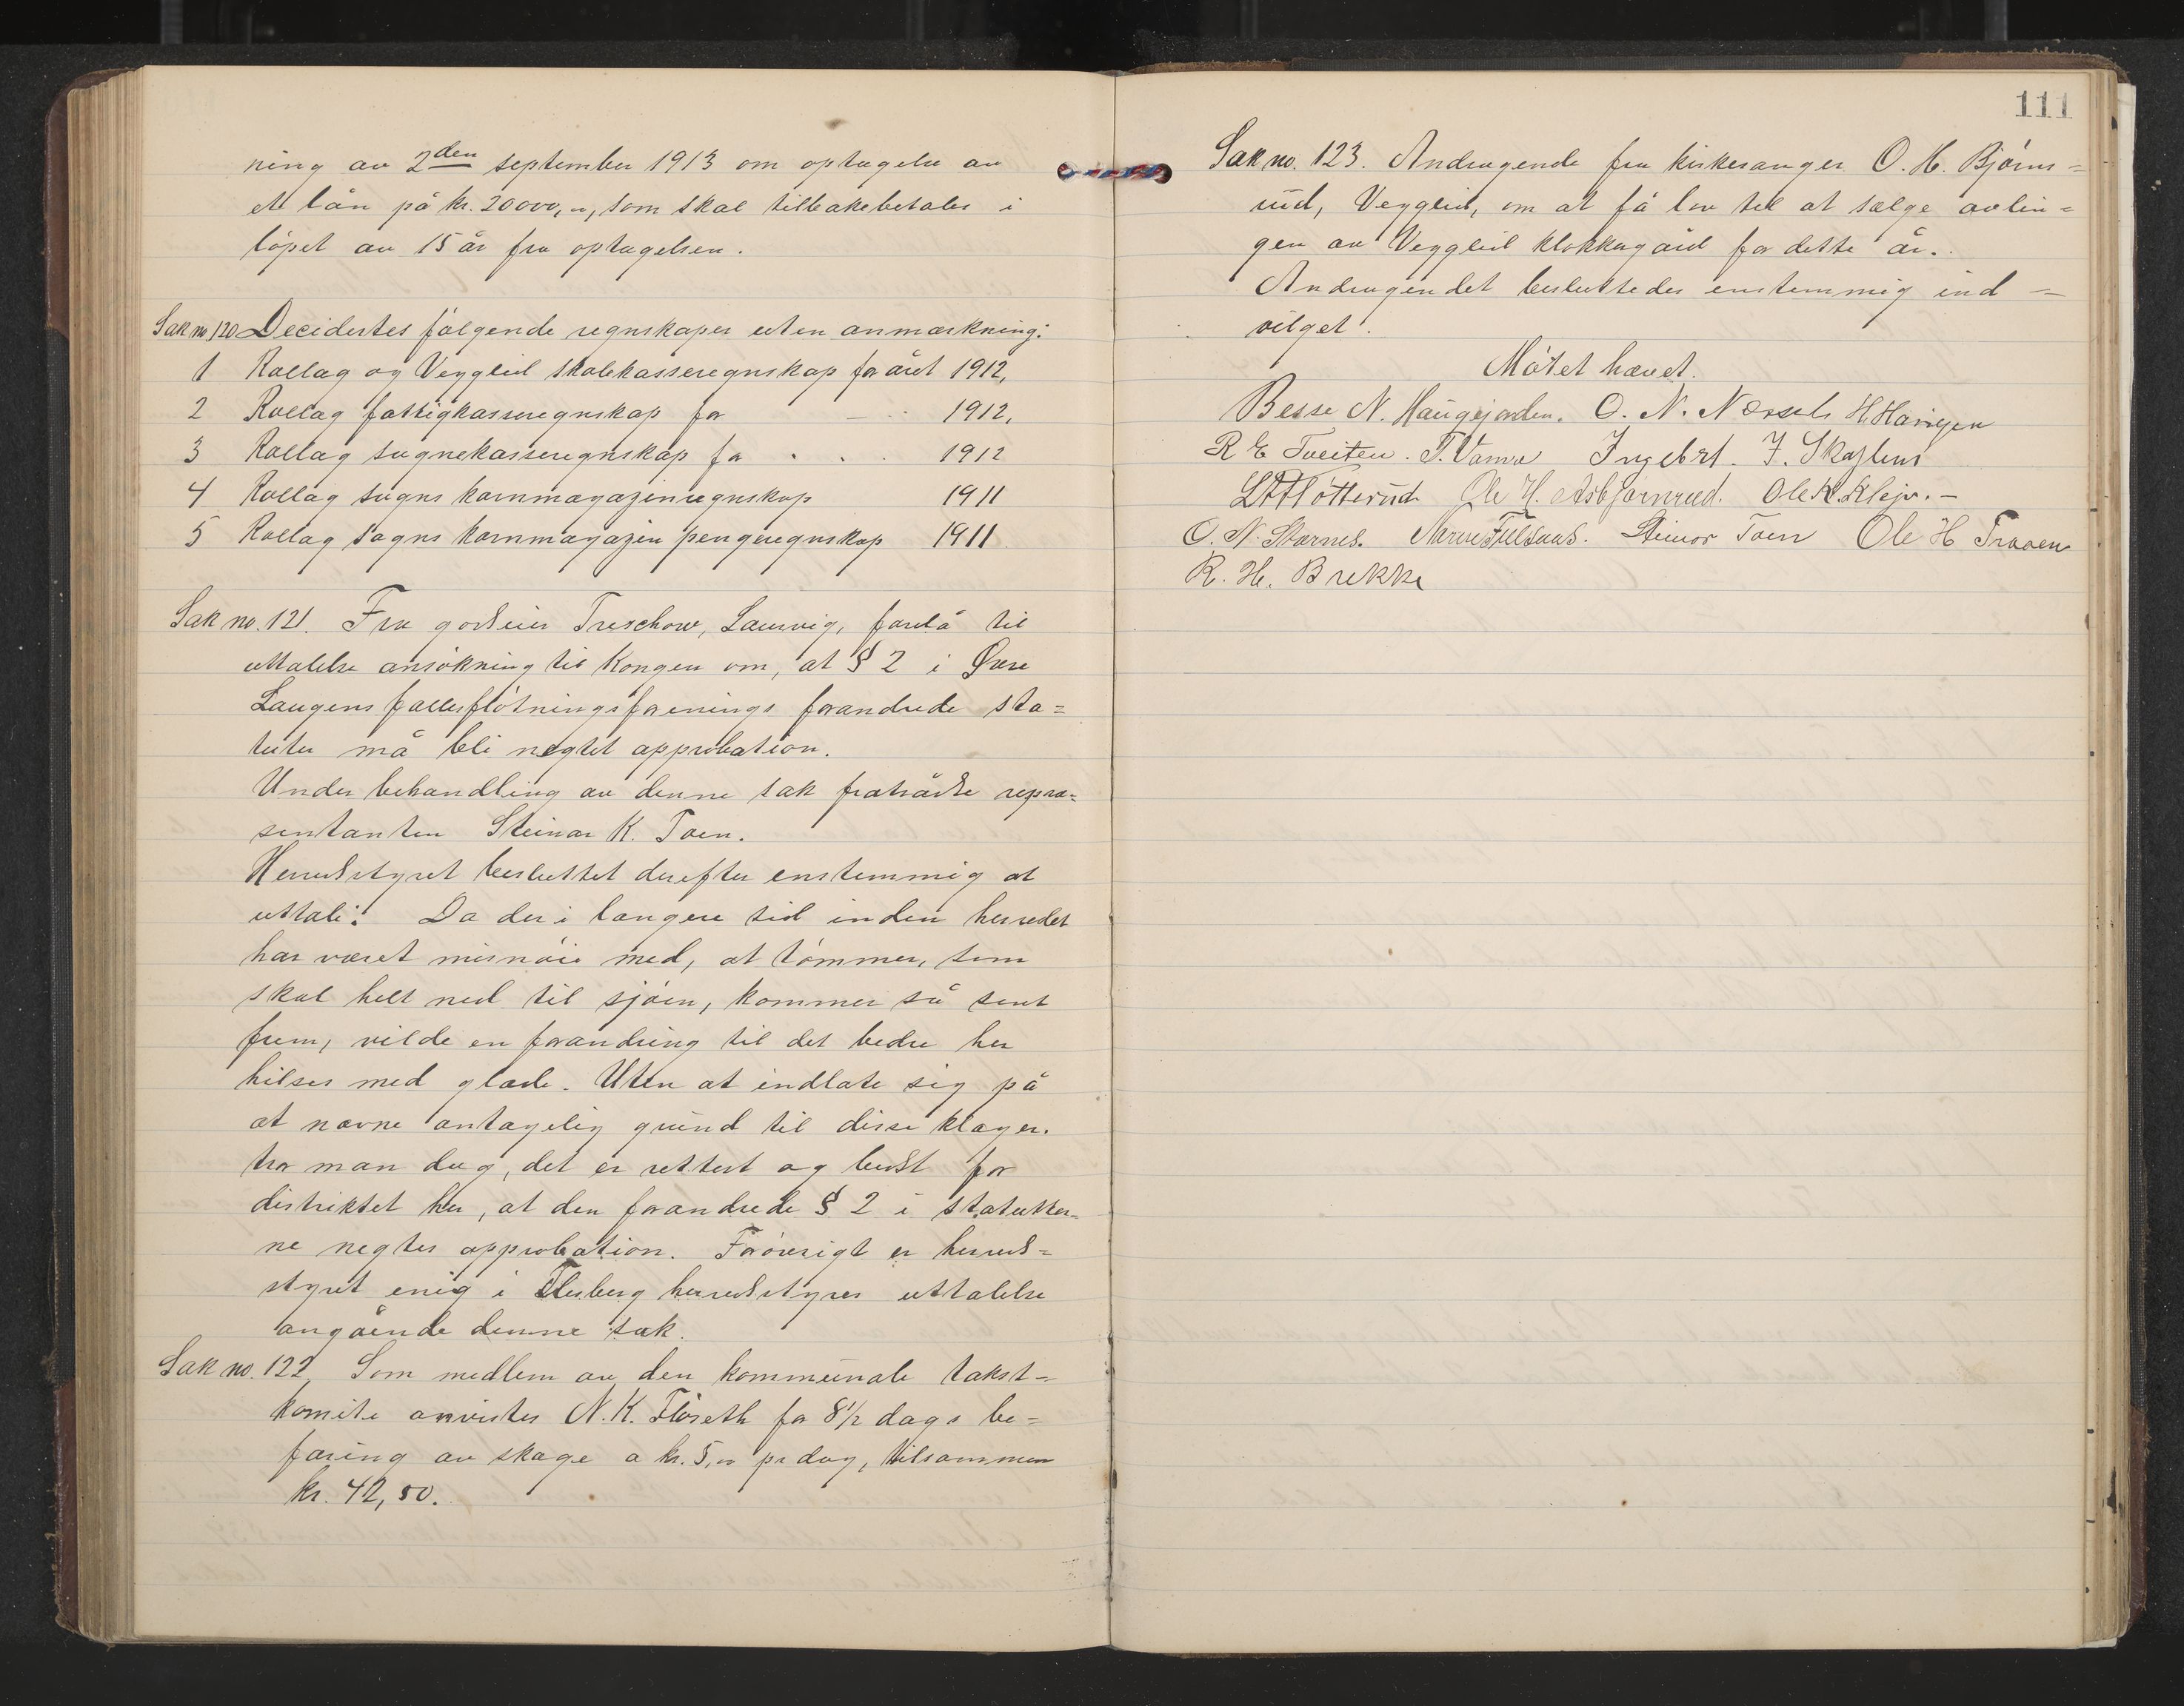 ning av 2den september 1913 om optagelse av
et lån på kr. 20000,00, som skal tilbakebetales i
løpet av 15 år fra optagelsen.
Sak no 120 Decidertes følgende regnskaper uten anmerkning:
1 Rollag og Vegglid skolekasseregnskap for året 1912,
2 Rollag fattigkasseregnskap for — " 1912,
3 Rollag sognekasseregnskap for " " " 1912
4 Rollag sogns kornmagazinregnskap 1911
5 Rollag sogns kornmagazin pengeregnskap 1911
Sak no. 121. Fra godseier Treschow, Laurvig, forelå til
uttalelse ansökning til Kongen om, at § 2 i Øvre
Laugens fællesfløtningsforenings forandrede sta=
tuter må bli negtet approbation.
Under behandling av denne sak fratrådte repræ=
sentanten Steinar K. Toen.
Herredsstyret besluttet derefter enstemmig at
uttale: Da der i længere tid inden herredet
har været misnøie med, at tømmer, som
skal helt ned til sjøen, kommer så sent
frem, vilde en forandring til det bedre her
hilses med glæde. Uten at indlate sig på
at nævne antagelig grund til disse klager.
tror man dog, det er rettest og bedst for
distriktet her, at den forandrede § 2 i statutter=
ne negtes approbation. Forøvrigt er herreds=
styret enig i Flesberg herredsstyres uttalelse
angående denne sak.
Sak no. 122. Som medlem av den kommunale takst=
komite anvistes N. K. Fløseth for 8½ dags be=
faring av skoge a kr. 5,00 pr dag, tilsammen
kr. 42,50.
111
Sak no. 123. Andragende fra kirkesanger O. H. Bjørns=
rud, Vegglid, om at få lov til at sælge avlin=
gen av Vegglid klokkergård for dette år.
Andragendet besluttedes enstemmig ind=
vilget.
Møtet hævet.
Besse N. Haugejorden. O. N. H. Haugen
R E Tveiten. T. Vamra Ingebrt. J. Skajlem
Ole H. Asbjørnrud. Ole K. Kleju. —
O. N. Starnes. Steinar Toen Ole H Traaen
R. H. Brekke